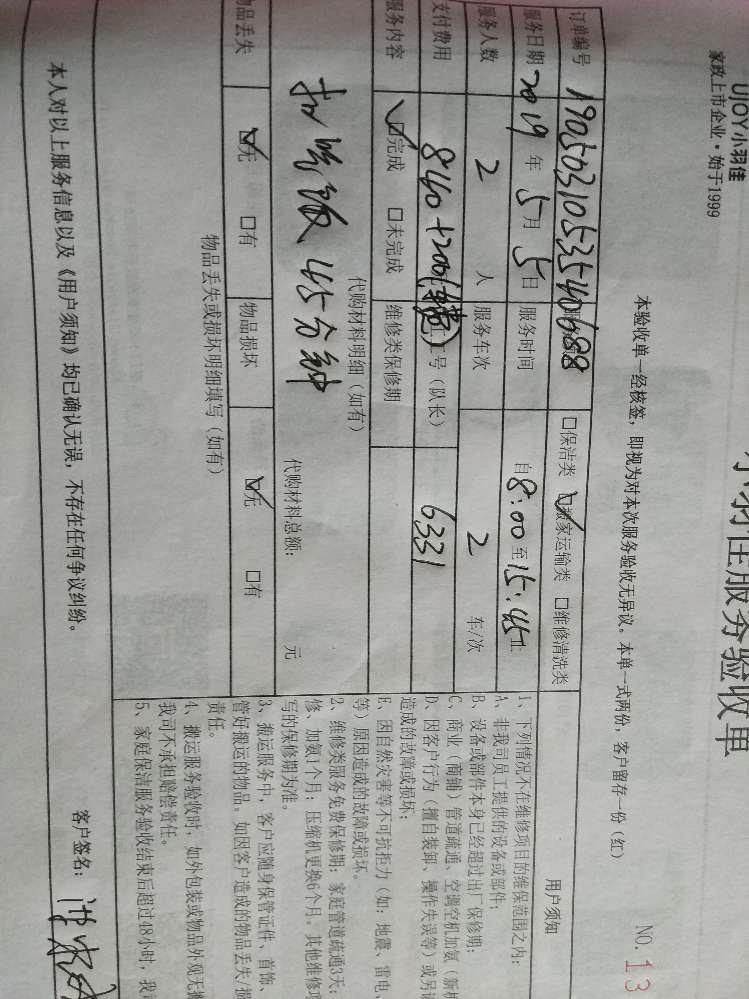 UJOY小羽佳
家政上市企业·始于1999
小羽佳服务验收单
本验收单一经核签，即视为对本次服务验收无异议。本单一式两份，客户留存一份（红）
NO. 13
订单编号 19050310535540688 □保洁类 ☑搬家运输类 □维修清洗类
服务日期 2019年5月5日 服务时间 自8:00至15:45止
服务人数 2人 服务车次 2车/次
支付费用 840+200 工号（队长） 6331
服务内容 ☑完成 □未完成 维修类保修期
代购材料明细（如有）
45分钟
代购材料总额： 元
物品丢失 ☑无 □有 物品损坏 ☑无 □有
物品丢失或损坏明细填写（如有）
用户须知
1、下列情况不在维修项目的维保范围之内：
A、非我司员工提供的设备或部件；
B、设备或部件本身已经超过出厂保修期；
C、商业（商铺）管道疏通、空调空机加氨（新机
D、因客户行为（擅自装卸、操作失误等）或另
造成的故障或损坏；
E、因自然灾害等不可抗拒力（如：地震、雷电、
等）原因造成的故障或损坏。
2、维修类服务免费保修期：家庭管道疏通3天；
修、加氨1个月；压缩机更换6个月。其他维修项
写的保修期为准。
3、搬运服务中，客户应随身保管证件、首饰、
管好搬运的物品。如因客户造成的物品丢失/损
责任。
4、搬运服务验收时，如外包装或物品外观无
我司不承担赔偿责任。
5、家庭保洁服务验收结束后超过48小时，我
本人对以上服务信息以及《用户须知》均已确认无误，不存在任何争议纠纷。
客户签名：